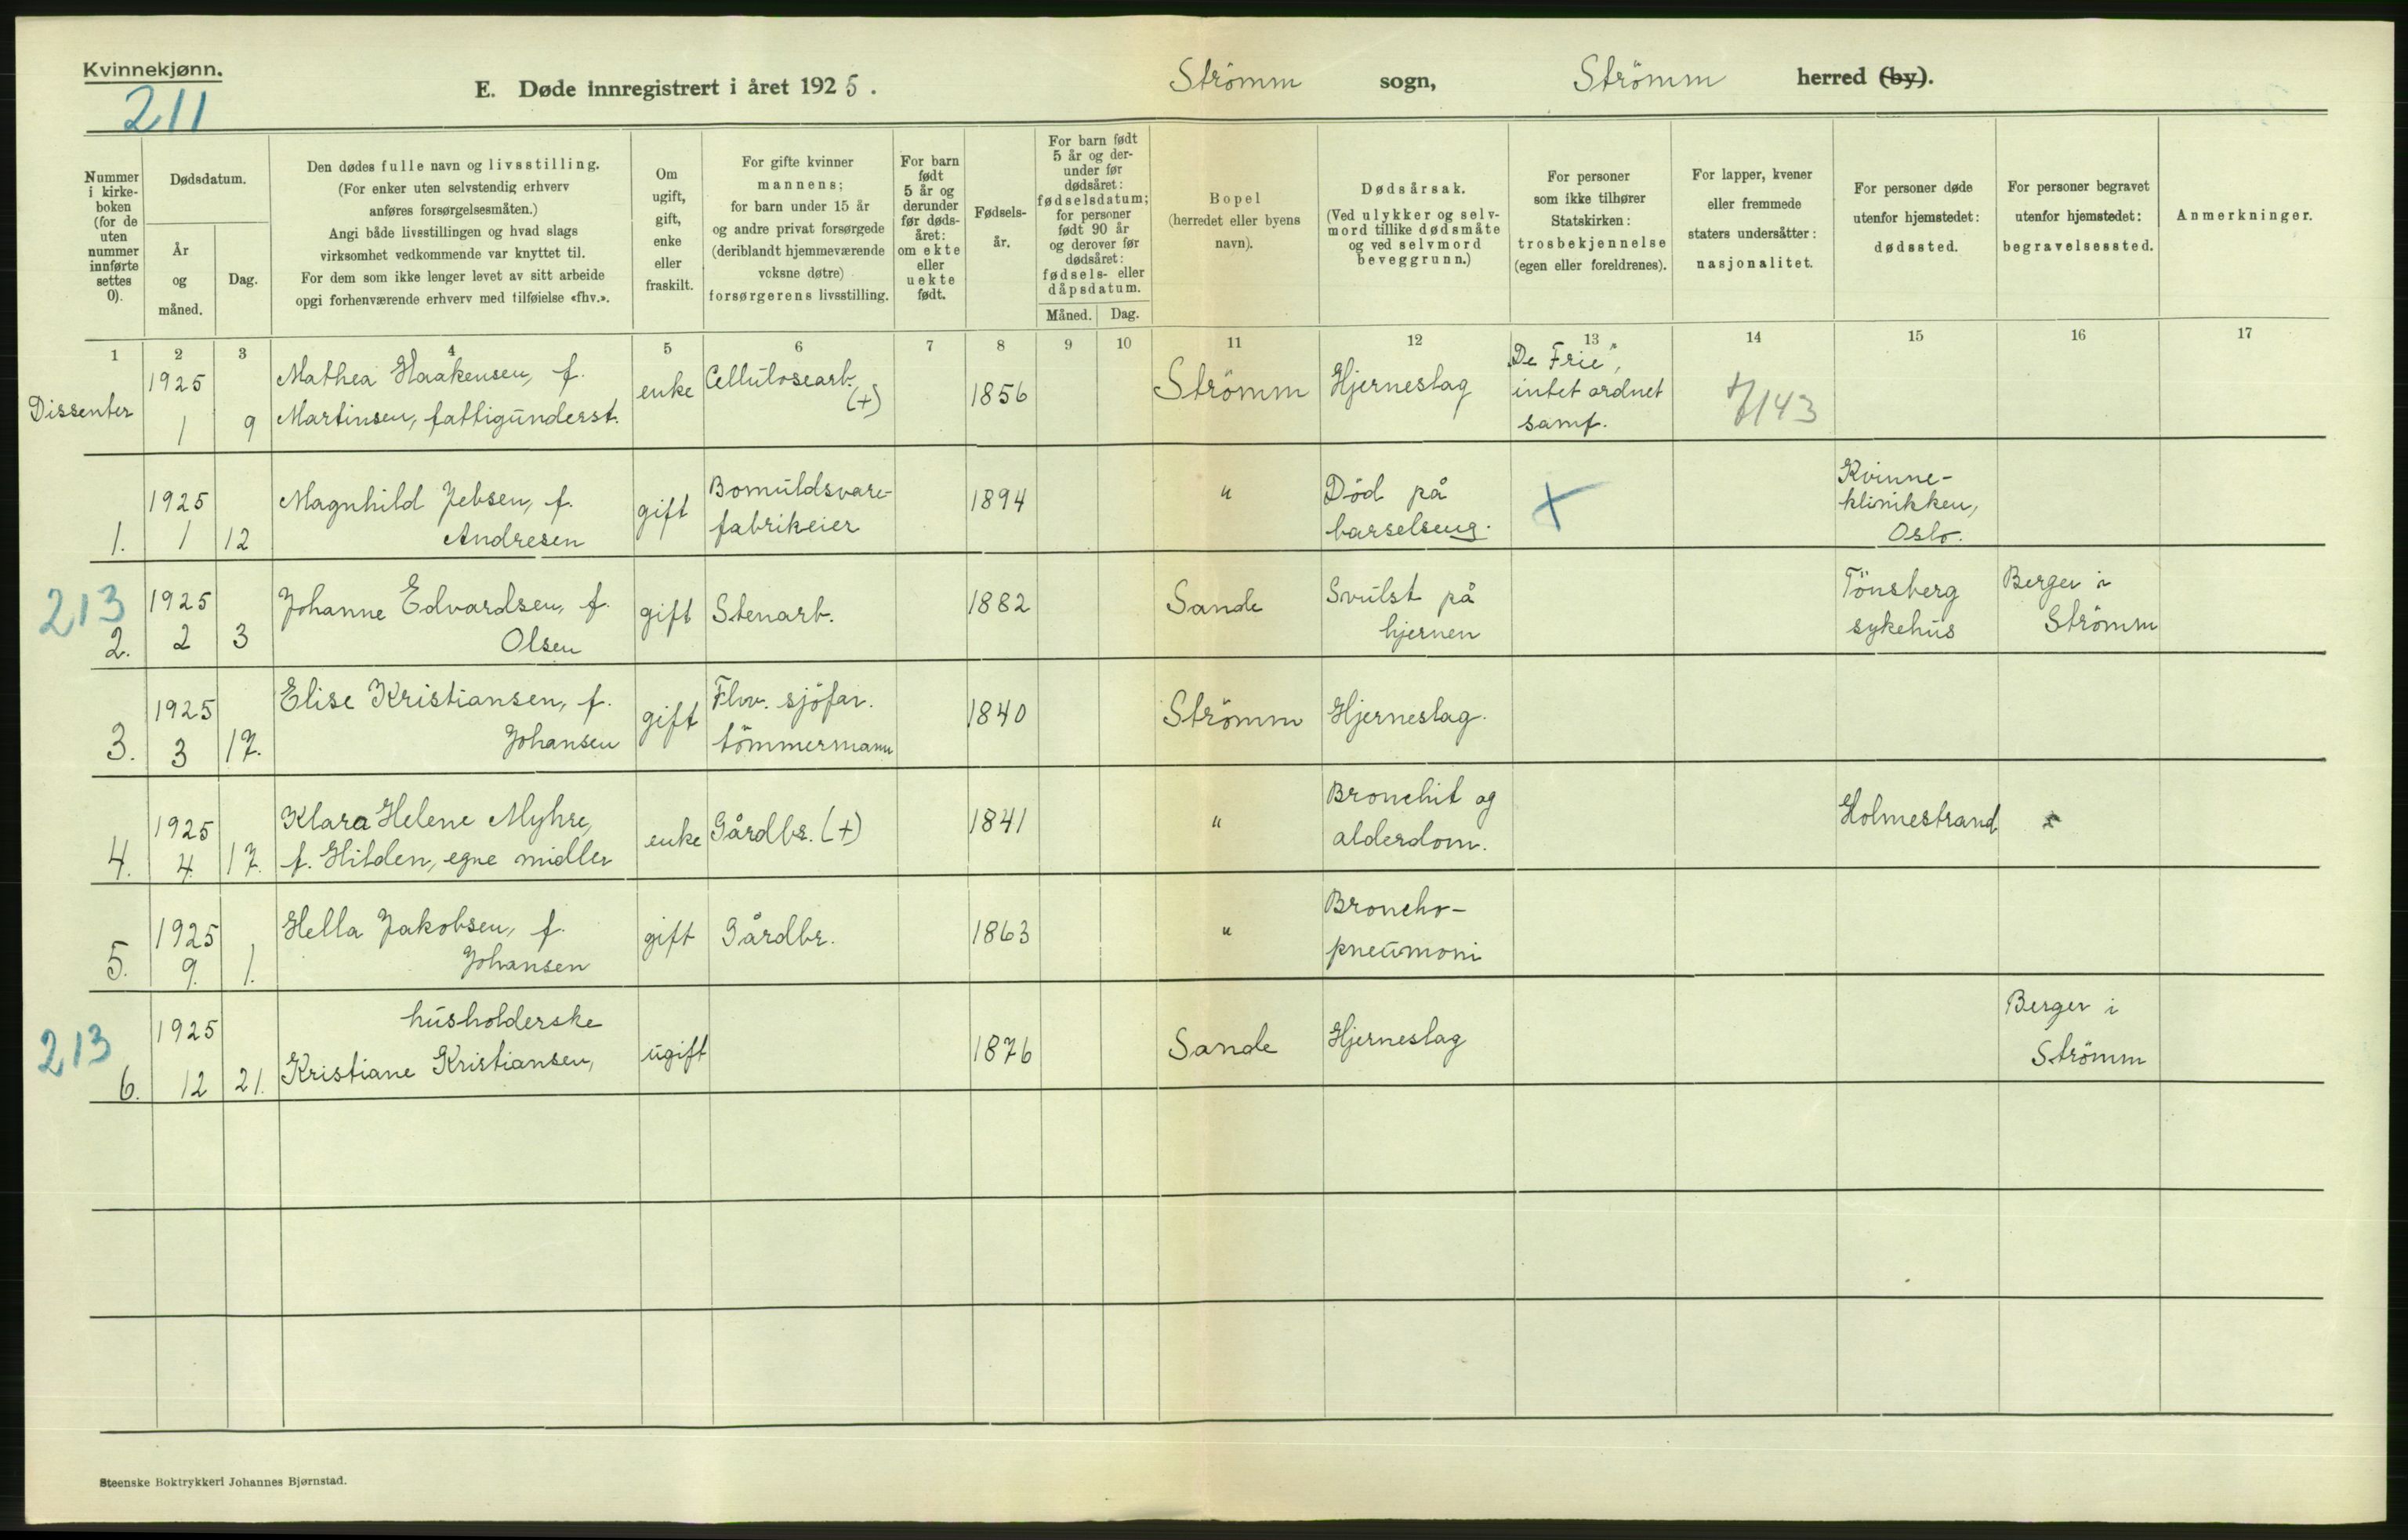 Kvinnekjønn.
211
E. Døde innregistrert i året 1925.
Strömm sogn, Strömm herred (by).
Nummer i kirkeboken (for de uten nummer innførte settes 0).
Dødsdatum.
År og måned.
Dag.
Den dødes fulle navn og livsstilling.
(For enker uten selvstendig erhverv
anføres forsørgelsesmåten.)
Angi både livsstillingen og hvad slags
virksomhet vedkommende var knyttet til.
For dem som ikke lenger levet av sitt arbeide
opgi forhenværende erhverv med tilføielse «fhv.».
Om
ugift,
gift,
enke
eller
fraskilt.
For gifte kvinner
mannens;
for barn under 15 år
og andre privat forsørgede
(deriblandt hjemmeværende
voksne døtre)
forsørgerens livsstilling.
For barn
født
5 år og
derunder
før døds-
året:
om ekte
eller
uekte
født.
Fødsels-
år.
For barn født
5 år og der-
under før
dødsåret:
fødselsdatum;
for personer
født 90 år
og derover før
dødsåret:
fødsels- eller
dåpsdatum.
Måned. Dag.
Bopel
(herredet eller byens
navn).
Dødsårsak.
(Ved ulykker og selv-
mord tillike dødsmåte
og ved selvmord
beveggrunn.)
For personer
som ikke tilhører
Statskirken:
trosbekjennelse
(egen eller foreldrenes).
For lapper, kvener
eller fremmede
staters undersåtter:
nasjonalitet.
For personer døde
utenfor hjemstedet:
dødssted.
For personer begravet
utenfor hjemstedet:
begravelsessted.
Anmerkninger.
1 2 3 4 5 6 7 8 9 10 11 12 13 14 15 16 17
Dissenter 1925 1 9
Mathea Haakensen, f.
Martinsen, fattigunderst.
enke
Cellulosearb.
(+)
1856
Strömm
Hjerneslag
"De Frie",
intet ordnet
samf.
1. 1925 1 12
Magnhild Jebsen, f.
Andresen
gift
Bomuldsvare-
fabrikeier
1894
"
Död på
barselseng.
Kvinne-
klinikken,
Oslo.
213
2. 1925 2 3
Johanne Edvardsen, f.
Olsen
gift
Stenarb.
1882
Sande
Svulst på
hjernen
Tönsberg
sykehus
Berger i
Strömm
3. 1925 3 17.
Elise Kristiansen, f.
Johansen
gift
Fhv. sjöfar.
tömmermann
1840
Strömm
Hjerneslag.
4. 1925 4 17.
Klara Helene Myhre,
f. Hilden, egne midler
enke
Gårdbr. (+)
1841
"
Bronchit og
alderdom.
Holmestrand
5. 1925 9. 1.
Hella Jakobsen, f.
Johansen
gift
Gårdbr.
1863
"
Broncho-
pneumoni
213
6. 1925 12 21.
husholderske
Kristiane Kristiansen,
ugift
1876
Sande
Hjerneslag
Berger i
Strömm
Steenske Boktrykkeri Johannes Bjørnstad.